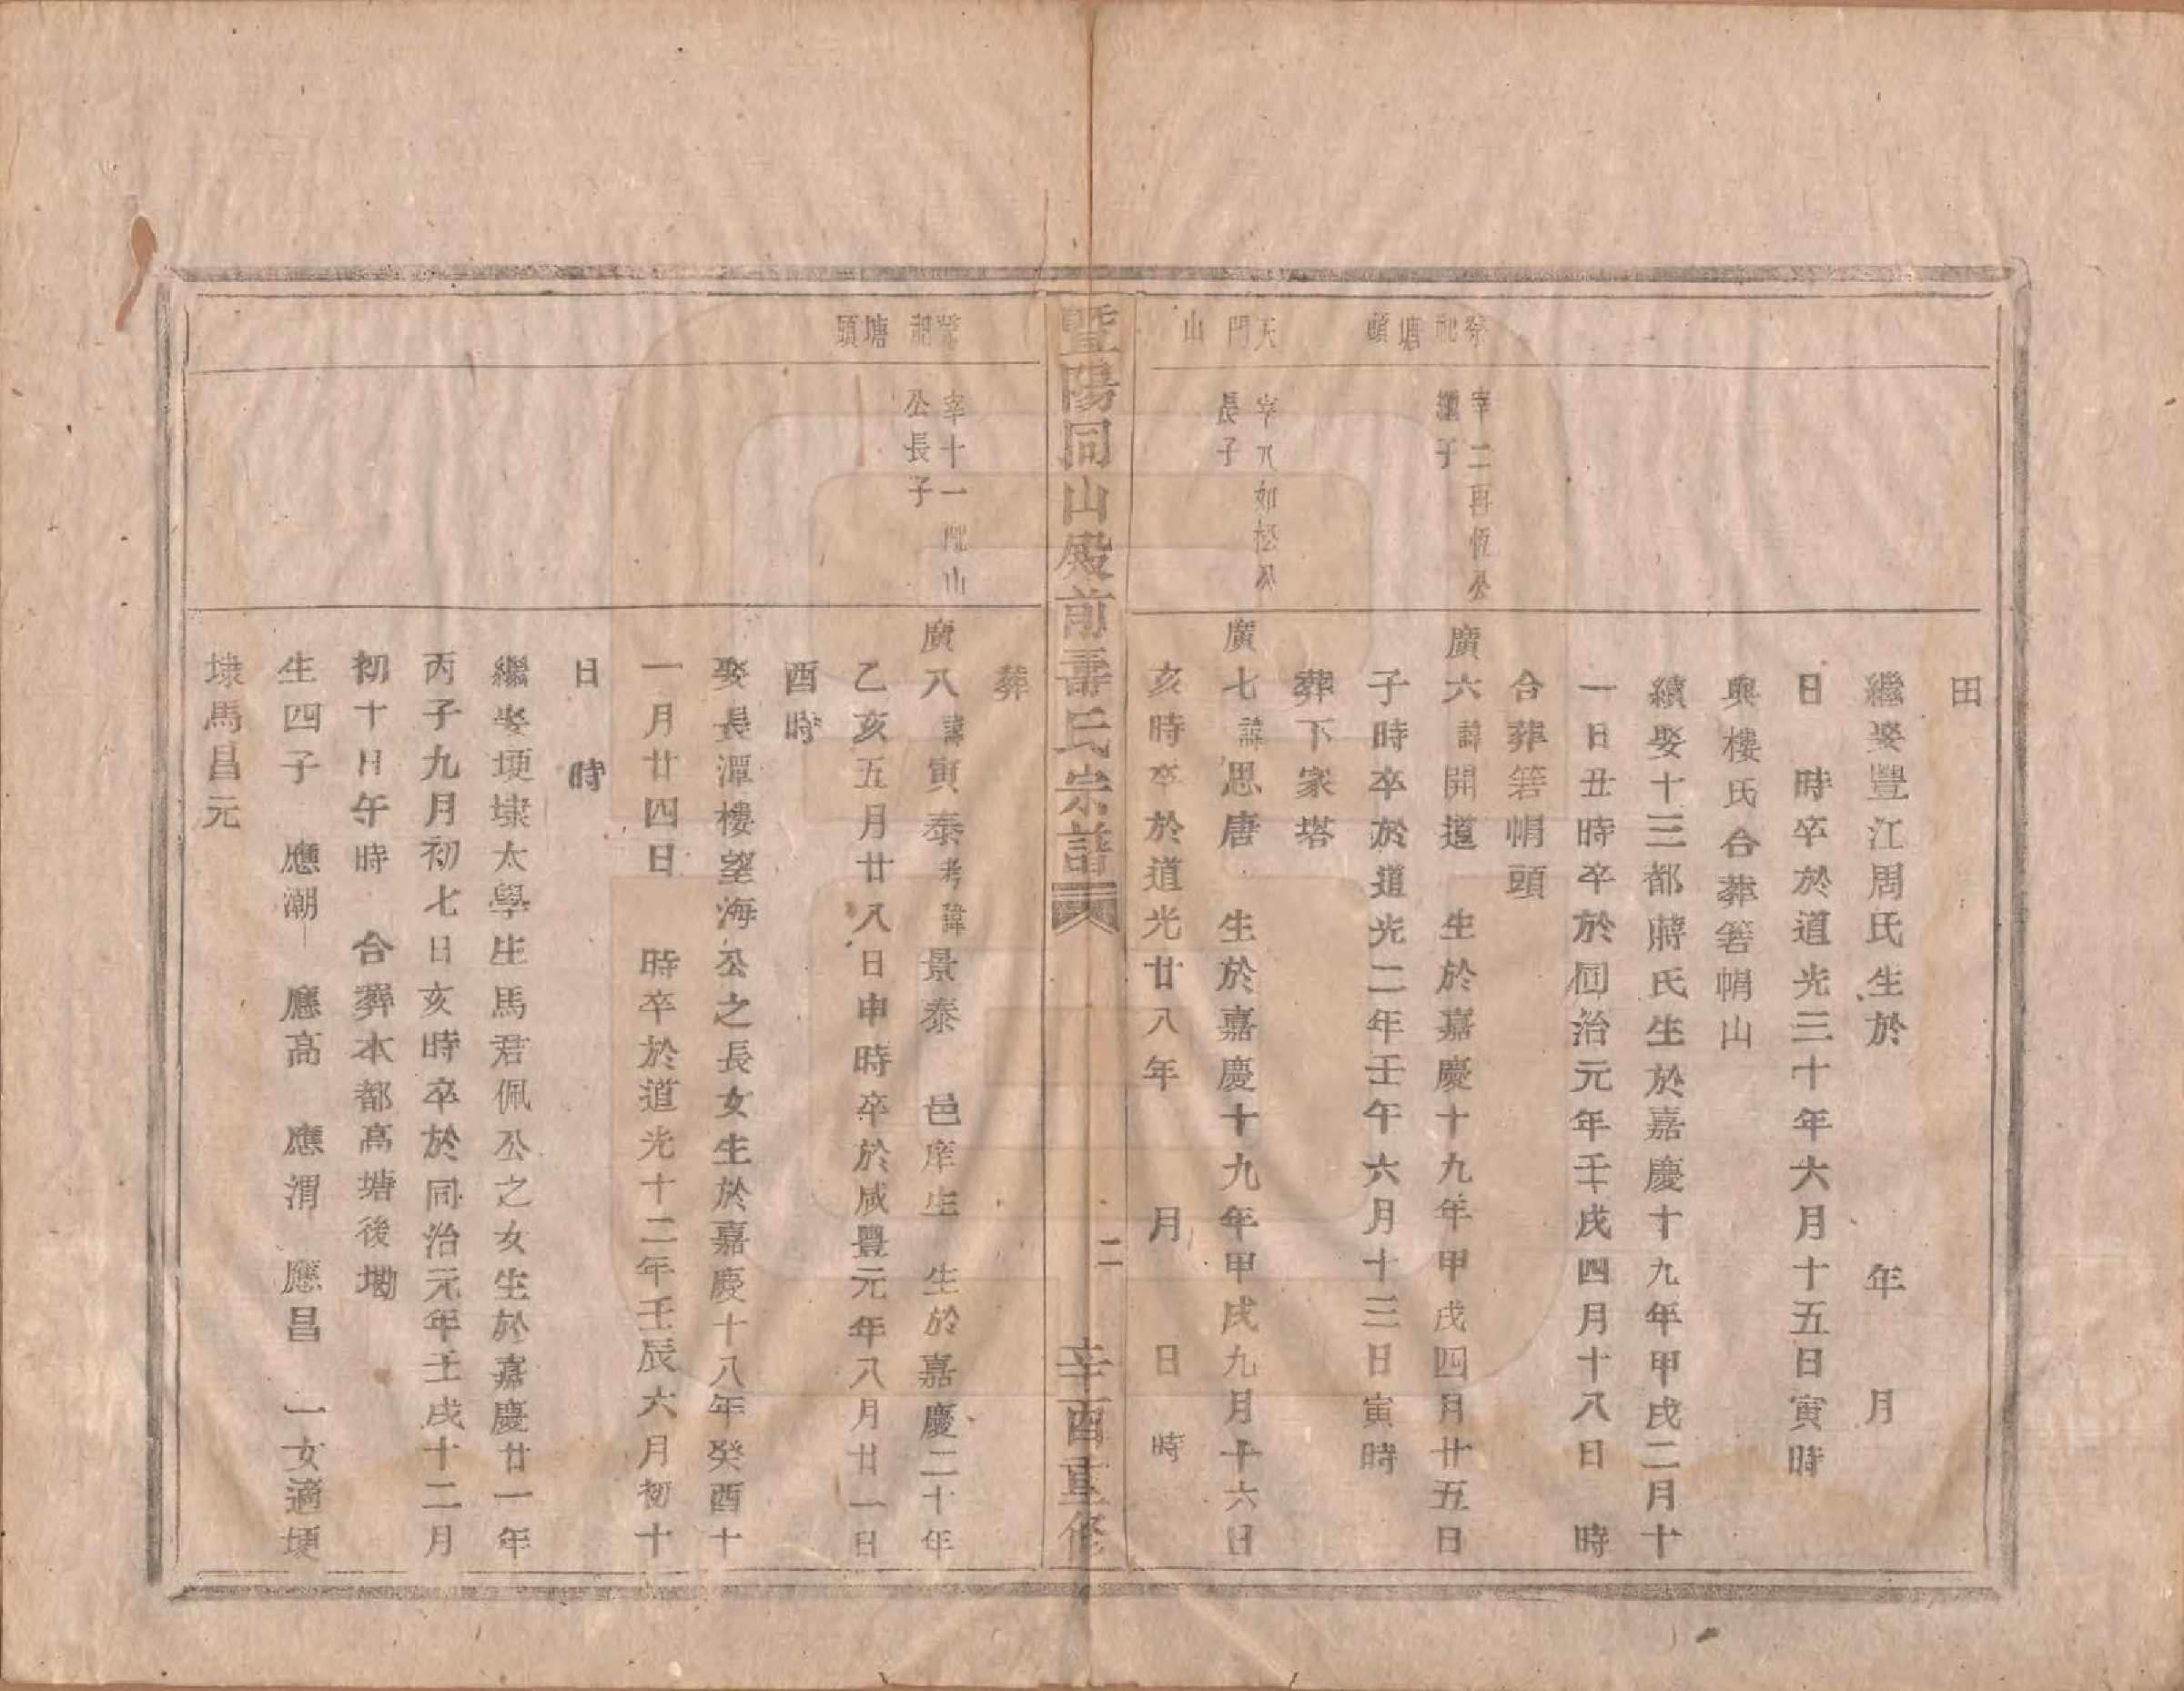 田
繼娶豐江周氏生於 年 月
日 時卒於道光三十年六月十五日寅時
與樓氏合葬箬帽山
續娶十三都蔣氏生於嘉慶十九年甲戌二月十
一日丑時卒於同治元年壬戌四月十八日 時
合葬箬帽頭
祭祀塘頭
宰二再恆公
繼子
廣六諱開道 生於嘉慶十九年甲戌四月廿五日
子時卒於道光二年壬午六月十三日寅時
葬下家塔
天門山
宰八如松公
長子
廣七諱思唐 生於嘉慶十九年甲戌九月十六日
亥時卒於道光廿八年 月 日 時
暨陽同山殿前壽氏宗譜
二
辛酉重修
葬
祭祀塘頭
宰十一 山
公長子
廣八諱寅泰考諱景泰 邑庠生 生於嘉慶二十年
乙亥五月廿八日申時卒於咸豐元年八月廿一日
酉時
娶長潭樓望海公之長女生於嘉慶十八年癸酉十
一月廿四日 時卒於道光十二年壬辰六月初十
日 時
繼娶埂埭太學生馬君佩公之女生於嘉慶廿一年
丙子九月初七日亥時卒於同治元年壬戌十二月
初十日午時 合葬本都高塘後坳
生四子 應潮 應高 應渭 應昌 一女適埂
埭馬昌元